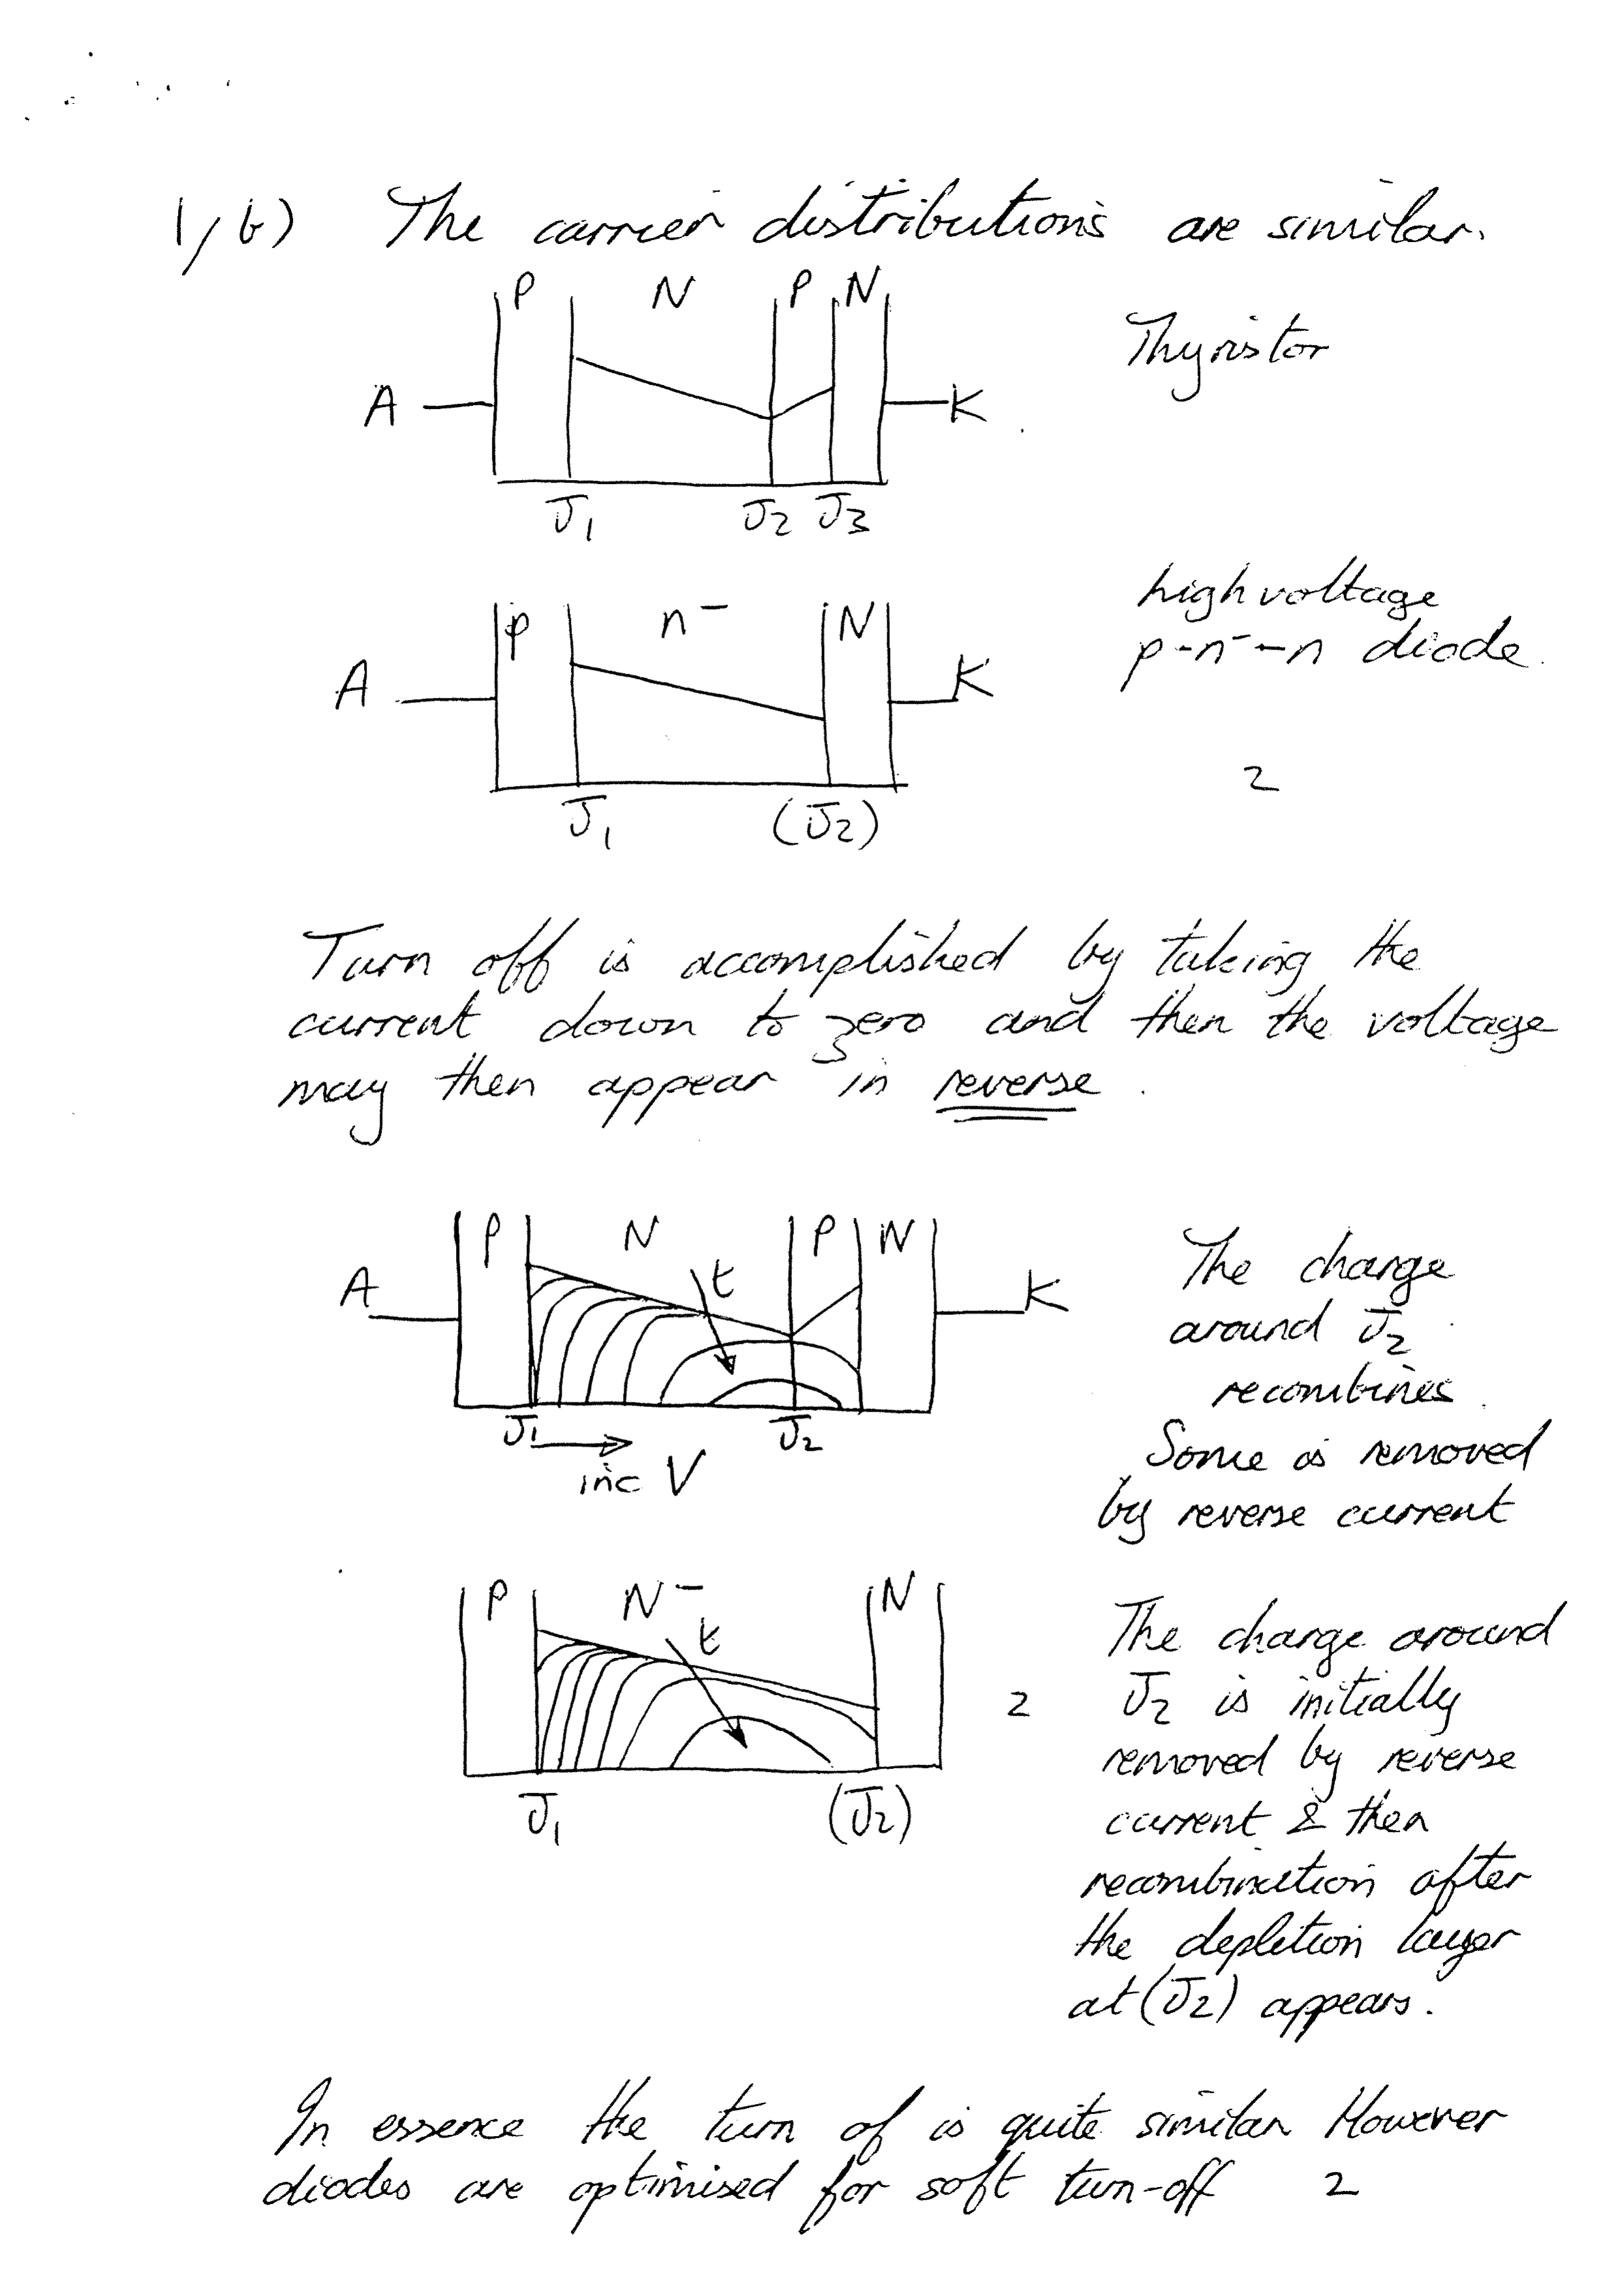 1/b) The carrier distributions are similar.
P N P N
Thyristor
A K
J1 J2 J3
high voltage
p n⁻ N
p-n⁻-n diode.
A K
2
J1 (J2)
Turn off is accomplished by taking the
current down to zero and then the voltage
may then appear in reverse.
P N P N
The charge
A t K
around J2
recombines.
J1 J2
Some is removed
inc V
by reverse current
P N⁻ N
The charge around
t
2 J2 is initially
removed by reverse
J1 (J2)
current & then
recombination after
the depletion layer
at (J2) appears.
In essence the turn of is quite similar However
diodes are optimised for soft turn-off 2